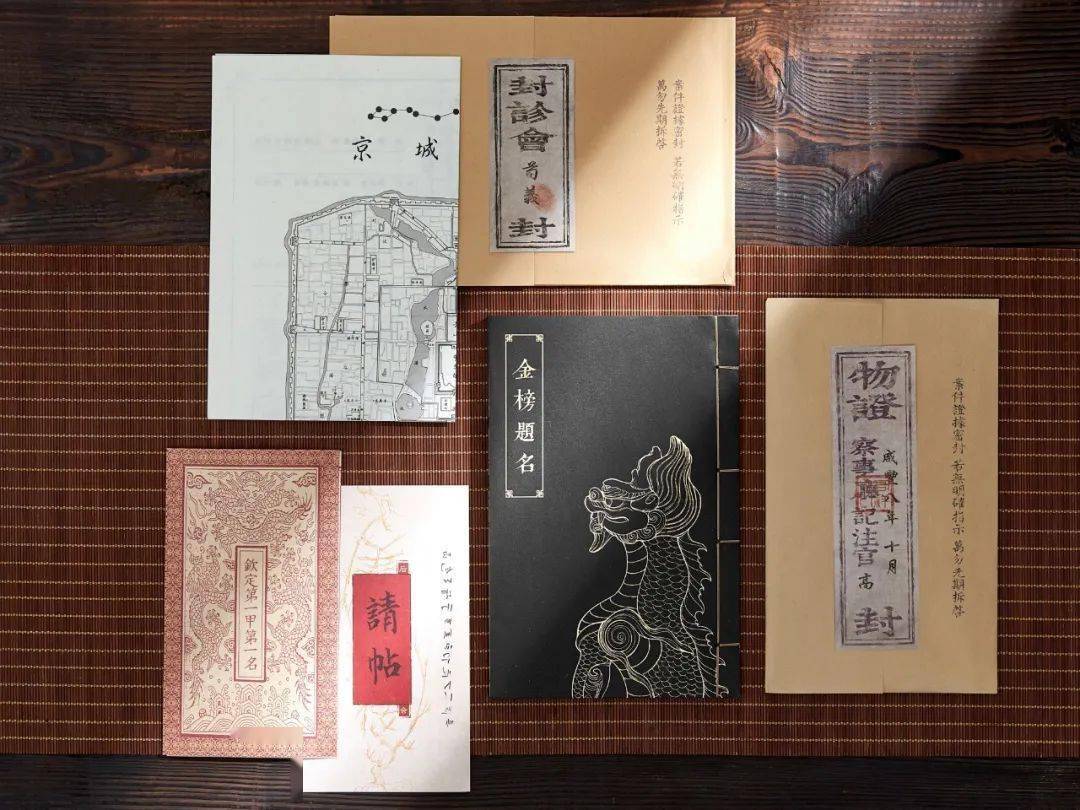 京城
封診會
荀義
封
案件證據密封 若無明確指示
萬勿先期拆啓
金榜題名
物證
察事廳記注官 高
咸豐八年十月
封
案件證據密封 若無明確指示 萬勿先期拆啓
欽定第一甲第一名
請帖